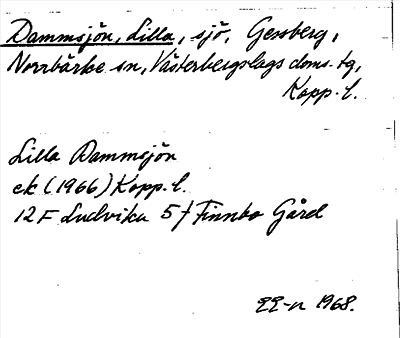 Dammsjön, Lilla, sjö, Gessberg,
Norrbärke sn, Västerbergslags doms. tg,
Kopp. l.
Lilla Dammsjön
ek (1966) Kopp. l.
12 F Ludvika 5 f Finnbo Gård
1968.